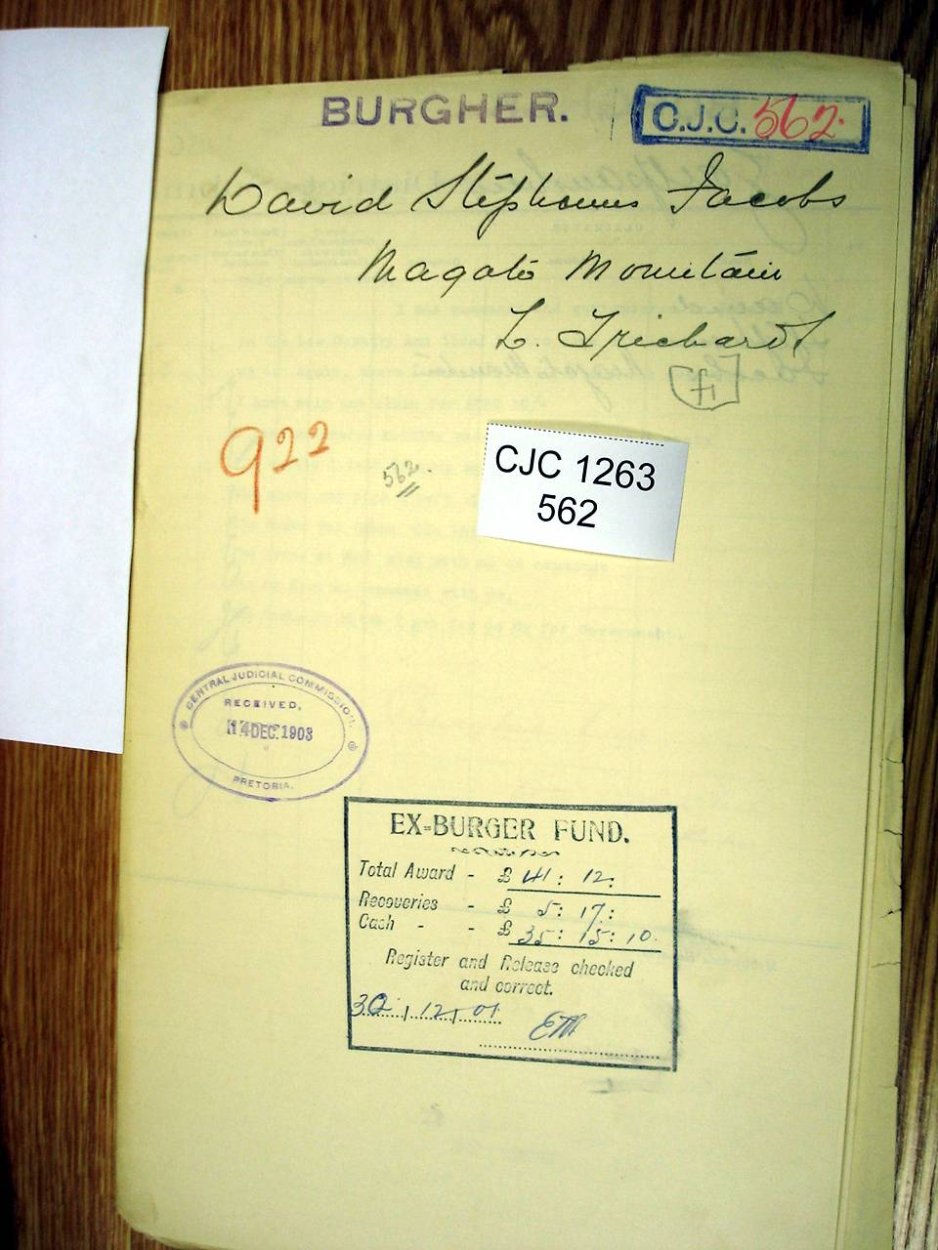 BURGHER.
C.J.C. 562.
David Stephanus Jacobs
Magato Mountain
L. Trichardt
922
562.
CJC 1263
562
CENTRAL JUDICIAL COMMISSION.
RECEIVED,
14 DEC. 1903
PRETORIA.
EX-BURGER FUND.
Total Award - £ 41 : 12 :
Recoveries - £ 5 : 17 :
Cash - - £ 35 : 15 : 10.
Register and Release checked
and correct.
30 / 12 / 01